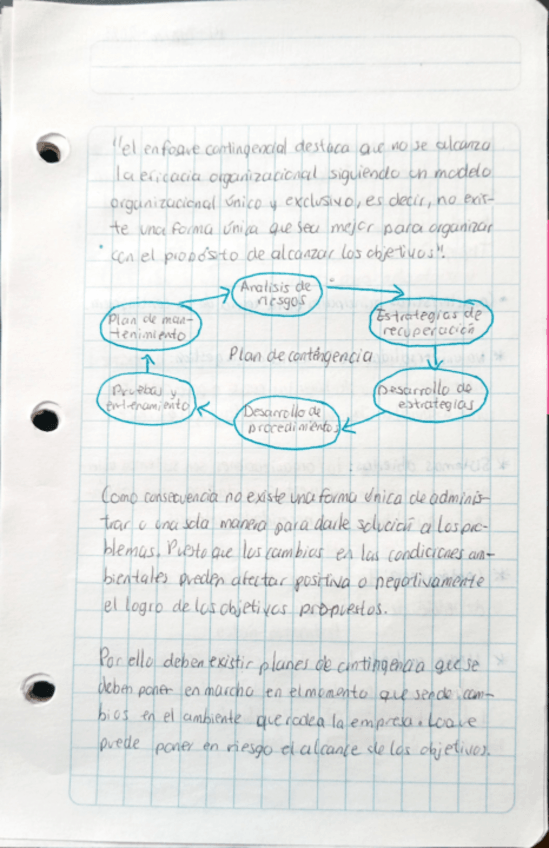 "el enfoque contingencial destaca que no se alcanza
la eficacia organizacional siguiendo un modelo
organizacional único y exclusivo, es decir, no exis-
te una forma única que sea mejor para organizar
con el propósito de alcanzar los objetivos".
Analisis de
riesgos
Estrategias de
recuperación
Desarrollo de
estrategias
Desarrollo de
procedimientos
Pruebas y
entrenamiento
Plan de man-
tenimiento
Plan de contingencia
Como consecuencia no existe una forma única de adminis-
trar o una sola manera para darle solución a los pro-
blemas. Puesto que los cambios en las condiciones am-
bientales pueden afectar positiva o negativamente
el logro de los objetivos propuestos.
Por ello deben existir planes de contingencia que se
deben poner en marcha en el momento que se de cam-
bios en el ambiente que rodea la empresa. Lo que
puede poner en riesgo el alcance de los objetivos.